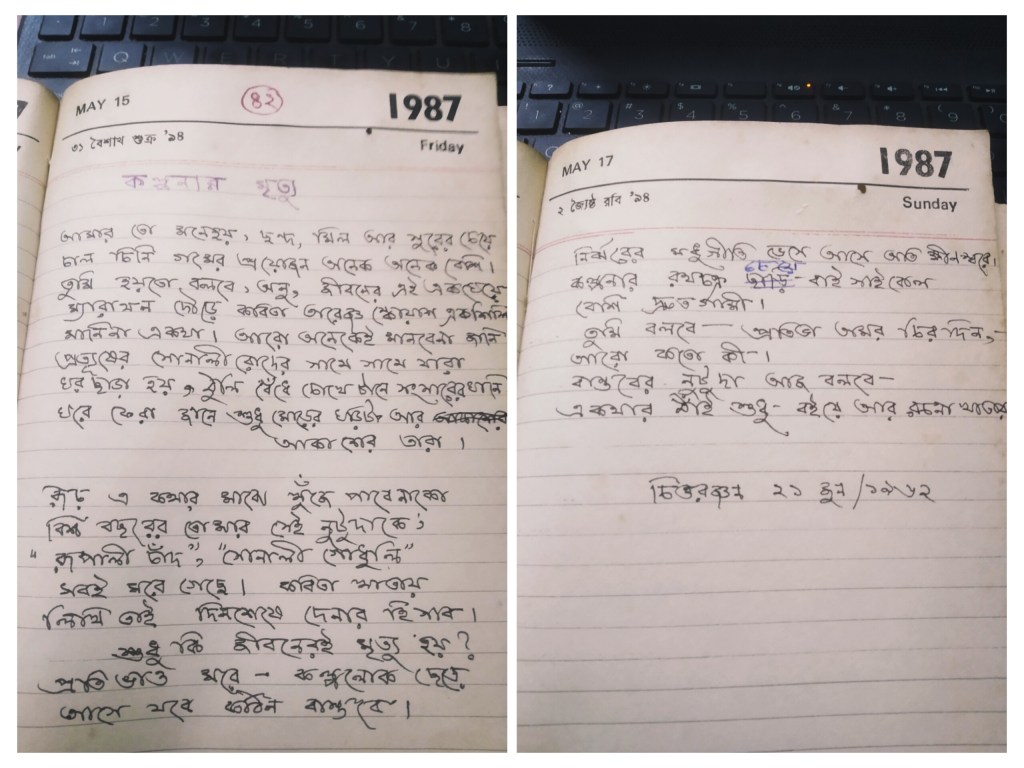 MAY 15
৪২
1987
৩১ বৈশাখ শুক্র '৯৪
Friday
কল্পনার মৃত্যু
আমার তো মনেহয়, ছন্দ, মিল আর সুরের চেয়ে
চাল চিনি গমের প্রয়োজন অনেক অনেক বেশি।
তুমি হয়তো বলবে, অনু, জীবনের এই একঘেয়ে
ম্যারাথন দৌড়ে কবিতা আরেকটু একশিশি
মানিনা একথা। আরো অনেকেই মানবেনা জানি
প্রত্যুষের সোনালী রোদের সাথে সাথে যারা
ঘর ছাড়া হয়, ঠুলি বেঁধে চোখে টানে সংসারের ঘানি
ঘরে ফেরা জানে শুধু মোড়ের ঘড়িটা আর
আকাশের তারা।
রূঢ় এ কথার মাঝে খুঁজে পাবেনাকো
বিশ বছরের তোমার সেই নুটুদাকে;
"রূপালী চাঁদ", "সোনালী গোধুলি"
সবই মরে গেছে। কবিতা খাতায়
লিখি তাই দিনশেষে দেনার হিসাব।
শুধু কি জীবনেরই মৃত্যু হয়?
প্রতিভাও মরে - কল্পলোক ছেড়ে
আসে যবে কঠিন বাস্তবে।
MAY 17
1987
২ জ্যৈষ্ঠ রবি '৯৪
Sunday
নির্ঝরের মধুগীতি ভেসে আসে অতি ক্ষীনস্বরে।
কল্পনার রথচক্র চেয়ে বাই সাইকেল
বেশি দ্রুতগামী।
তুমি বলবে— প্রতিভা অমর চির দিন,-
আরো কতো কী-।
বাস্তবের নুটুদা আজ বলবে—
একথার ঠাঁই শুধু- বইয়ে আর রচনা খাতায়
চিত্তরঞ্জন ২১ জুন/১৯৬২